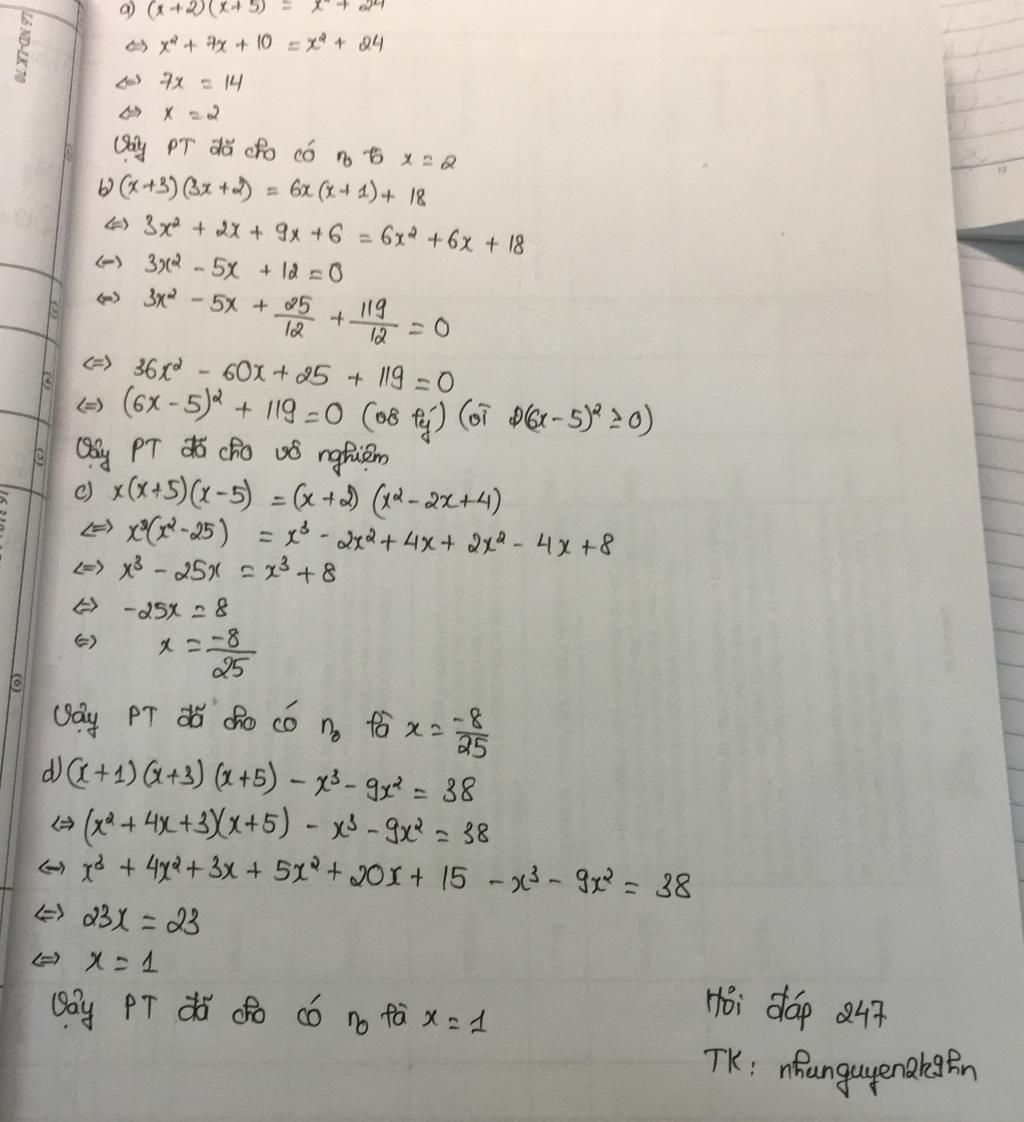 a) (x+2)(x+5) = x² + 24
⇔ x² + 7x + 10 = x² + 24
⇔ 7x = 14
⇔ x = 2
Vậy PT đã cho có no là x = 2
b) (x+3)(3x+2) = 6x(x+1) + 18
⇔ 3x² + 2x + 9x + 6 = 6x² + 6x + 18
⇔ 3x² - 5x + 12 = 0
⇔ 3x² - 5x + 25/12 + 119/12 = 0
⇔ 36x² - 60x + 25 + 119 = 0
⇔ (6x - 5)² + 119 = 0 (vô lý) (vì (6x - 5)² ≥ 0)
Vậy PT đã cho vô nghiệm
c) x(x+5)(x-5) = (x+2)(x² - 2x + 4)
⇔ x(x² - 25) = x³ - 2x² + 4x + 2x² - 4x + 8
⇔ x³ - 25x = x³ + 8
⇔ -25x = 8
⇔ x = -8/25
Vậy PT đã cho có no là x = -8/25
d) (x+1)(x+3)(x+5) - x³ - 9x² = 38
⇔ (x² + 4x + 3)(x+5) - x³ - 9x² = 38
⇔ x³ + 4x² + 3x + 5x² + 20x + 15 - x³ - 9x² = 38
⇔ 23x = 23
⇔ x = 1
Vậy PT đã cho có no là x = 1
Hỏi đáp 247
TK: nhunguyen2k9hn
L6 ND-LK 70